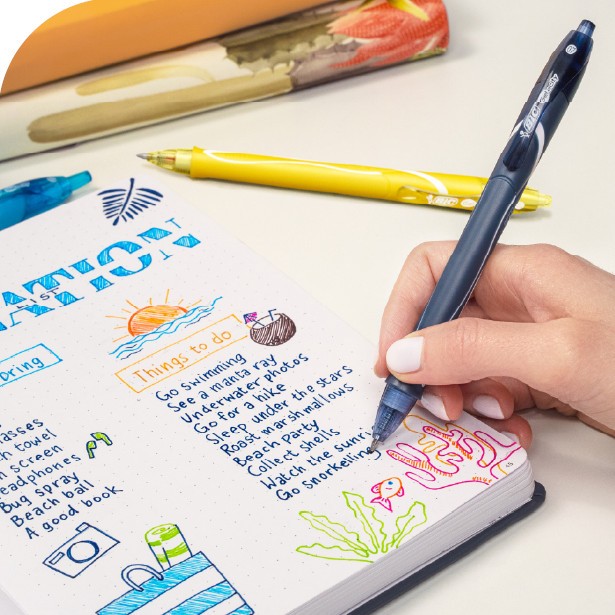 ATION
IST
ring
Things to do
Go swimming
See a manta ray
Underwater photos
Go for a hike
Sleep under the stars
Roast marshmallows
Beach party
Collect shells
Watch the sunri
Go snorkeling
lasses
h towel
n screen
eadphones
Bug spray
Beach ball
A good book
BIC
BIC